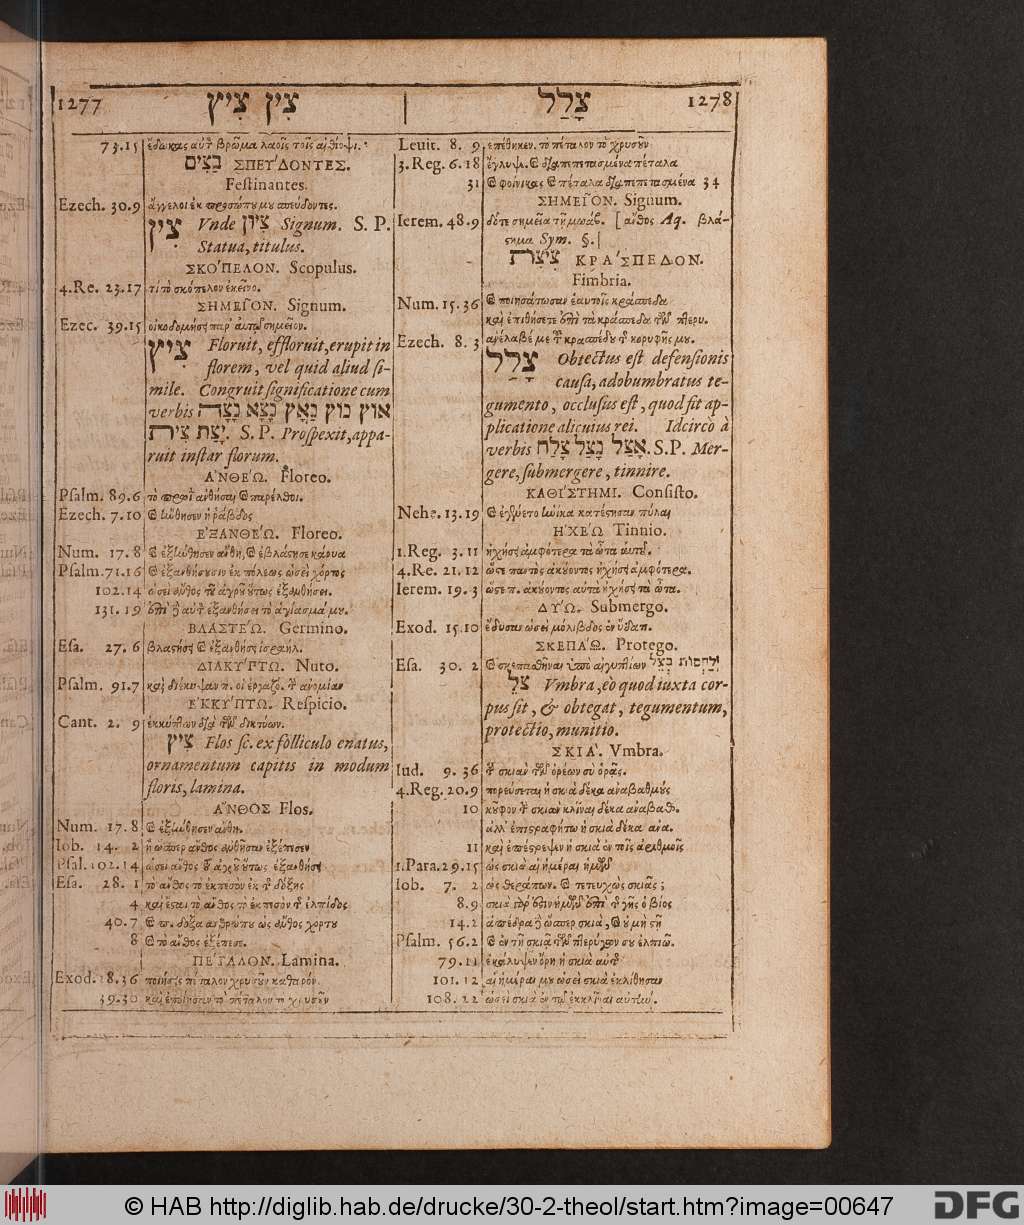 1277 צִין צִיץ
צָלַל 1278
73.15 ἔδωκας αὐτὸν βρῶμα λαοῖς τοῖς αἰθίοψι.
בָּצִים ΣΠΕΎΔΟΝΤΕΣ.
Festinantes.
Ezech. 30.9 ἄγγελοι ἐκ προσώπου μου σπεύδοντες.
צִין Vnde צִיּוּן Signum. S. P.
Statua, titulus.
ΣΚΌΠΕΛΟΝ. Scopulus.
4.Re. 23.17 τί τὸ σκόπελον ἐκεῖνο.
ΣΗΜΕΙ͂ΟΝ. Signum.
Ezec. 39.15 οἰκοδομήσῃ παρ' αὐτῷ σημεῖον.
צִיץ Floruit, effloruit, erupit in
florem, vel quid aliud si-
mile. Congruit significatione cum
verbis אוץ נוץ נָאַץ נָצָא נָצָה
יָצַת צִית. S. P. Prospexit, appa-
ruit instar florum.
ἈΝΘΕΏ. Floreo.
Psalm. 89.6 τὸ πρωῒ ἀνθήσαι καὶ παρέλθοι.
Ezech. 7.10 καὶ ἤνθησεν ἡ ῥάβδος
ἘΞΑΝΘΕΏ. Floreo.
Num. 17.8 καὶ ἐξήνθησεν ἄνθη, καὶ ἐβλάστησε κάρυα
Psalm. 71.16 καὶ ἐξανθήσουσιν ἐκ πόλεως ὡσεὶ χόρτος
102.14 ὡσεὶ ἄνθος τοῦ ἀγροῦ οὕτως ἐξανθήσει.
131.19 ἐπὶ δὲ αὐτὸν ἐξανθήσει τὸ ἁγίασμά μου.
ΒΛΑΣΤΕΏ. Germino.
Esa. 27.6 βλαστήσῃ καὶ ἐξανθήσῃ ἰσραήλ.
ΔΙΑΚΎΠΤΩ. Nuto.
Psalm. 91.7 καὶ διέκυψαν π. οἱ ἐργαζο. τὴν ἀνομίαν
ἘΚΚΎΠΤΩ. Respicio.
Cant. 2. 9 ἐκκύπτων διὰ τῶν δικτύων.
צִיץ Flos sc. ex folliculo enatus,
ornamentum capitis in modum
floris, lamina.
ἌΝΘΟΣ Flos.
Num. 17.8 καὶ ἐξήνθησεν ἄνθη.
Iob. 14. 2 ἢ ὥσπερ ἄνθος ἀνθῆσαν ἐξέπεσεν
Psal. 102.14 ὡσεὶ ἄνθος τοῦ ἀγροῦ οὕτως ἐξανθήσῃ
Esa. 28. 1 τὸ ἄνθος τὸ ἐκπεσὸν ἐκ τῆς δόξης
4 καὶ ἔσται τὸ ἄνθος τὸ ἐκπεσὸν τῆς ἐλπίδος
40.7 καὶ π. δόξα ἀνθρώπου ὡς ἄνθος χόρτου
8 καὶ τὸ ἄνθος ἐξέπεσε.
ΠΕ΄ΤΑΛΟΝ. Lamina.
Exod. 28.36 ποιήσεις πέταλον χρυσοῦν καθαρόν.
39.30 καὶ ἐποίησαν τὸ πέταλον τὸ χρυσοῦν
Leuit. 8. 9 ἐπέθηκεν. τὸ πέταλον τὸ χρυσοῦν
3.Reg. 6.18 ἔγλυψε. καὶ διαπεπετασμένα πέταλα
31 καὶ φοίνικας καὶ πέταλα διαπεπετασμένα 34
ΣΗΜΕΙ͂ΟΝ. Signum.
Ierem. 48.9 δότε σημεῖα τῇ μωάβ. [ἄνθος Aq. βλά-
στημα Sym. §.]
צִיצִת ΚΡΑ΄ΣΠΕΔΟΝ.
Fimbria.
Num. 15.36 καὶ ποιησάτωσαν ἑαυτοῖς κράσπεδα
καὶ ἐπιθήσετε ἐπὶ τὰ κράσπεδα τῶν πτερυ.
Ezech. 8. 3 ἀνέλαβέ με τοῦ κρασπέδου τῆς κορυφῆς μου.
צָלַל Obiectus est defensionis
causa, adobumbratus te-
gumento, occlusus est, quod fit ap-
plicatione alicuius rei. Idcirco à
verbis אָצַל נָצַל צָלַח. S. P. Mer-
gere, submergere, tinnire.
ΚΑΘΊΣΤΗΜΙ. Consisto.
Nehe. 13.19 καὶ ἐγένετο ἡνίκα κατέστησαν πύλαι
ἨΧΕΏ Tinnio.
1.Reg. 3.11 ἠχήσῃ ἀμφότερα τὰ ὦτα αὐτοῦ.
4.Re. 21.12 ὥστε παντὸς ἀκούοντος ἠχήσῃ ἀμφότερα.
Ierem. 19.3 ὥστε π. ἀκούοντος αὐτὰ ἠχήσῃ τὰ ὦτα.
ΔΎΩ. Submergo.
Exod. 15.10 ἔδυσαν ὡσεὶ μόλιβδος ἐν ὕδατι.
ΣΚΕΠΆΩ. Protego.
Esa. 30. 2 καὶ σκεπασθῆναι ὑπὸ αἰγυπτίων לַחְסוֹת בְּצֵל
צֵל Vmbra, eo quod iuxta cor-
pus sit, & obtegat, tegumentum,
protectio, munitio.
ΣΚΙΆ. Vmbra.
Iud. 9. 36 τὴν σκιὰν τῶν ὀρέων σὺ ὁρᾷς.
4.Reg. 20.9 πορεύσεται ἡ σκιὰ δέκα ἀναβαθμούς
10 κοῦφον τὴν σκιὰν κλῖναι δέκα ἀναβαθ.
ἀλλ' ἐπιστραφήτω ἡ σκιὰ δέκα ἀνα.
11 καὶ ἐπέστρεψεν ἡ σκιὰ ἐν τοῖς ἀριθμοῖς
1.Para. 29.15 ὡς σκιὰ αἱ ἡμέραι ἡμῶν
Iob. 7. 2 ὡς θεράπων. καὶ τετευχὼς σκιᾶς;
8.9 σκιὰ γάρ ἐστιν ἡμῶν ἐπὶ τῆς γῆς ὁ βίος
14.2 ἀπέδρα δὲ ὥσπερ σκιὰ, καὶ οὐ μὴ στῇ
Psalm. 56.2 καὶ ἐν τῇ σκιᾷ τῶν πτερύγων σου ἐλπιῶ.
79.11 ἐκάλυψεν ὄρη ἡ σκιὰ αὐτῆς
101.12 αἱ ἡμέραι μου ὡσεὶ σκιὰ ἐκλίθησαν
108.22 ὡσεὶ σκιὰ ἐν τῷ ἐκκλῖναι αὐτήν.
© HAB http://diglib.hab.de/drucke/30-2-theol/start.htm?image=00647
DFG